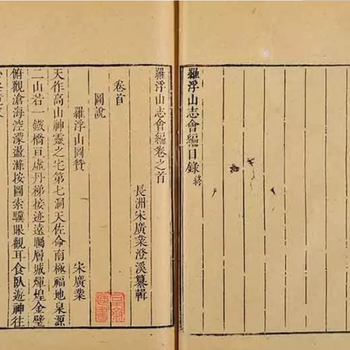 羅浮山志會編目錄終
羅浮山志會編卷之首
長洲宋廣業澄溪纂輯
卷首
圖說
羅浮山圖贊
宋廣業
天作高山神靈之宅第七洞天佐命南極福地泉源
二山若一鐵橋亘虛丹梯接迹遠矚層城輝煌金璧
俯觀滄海濛盪按圖索驥眼觀耳食臥遊神往